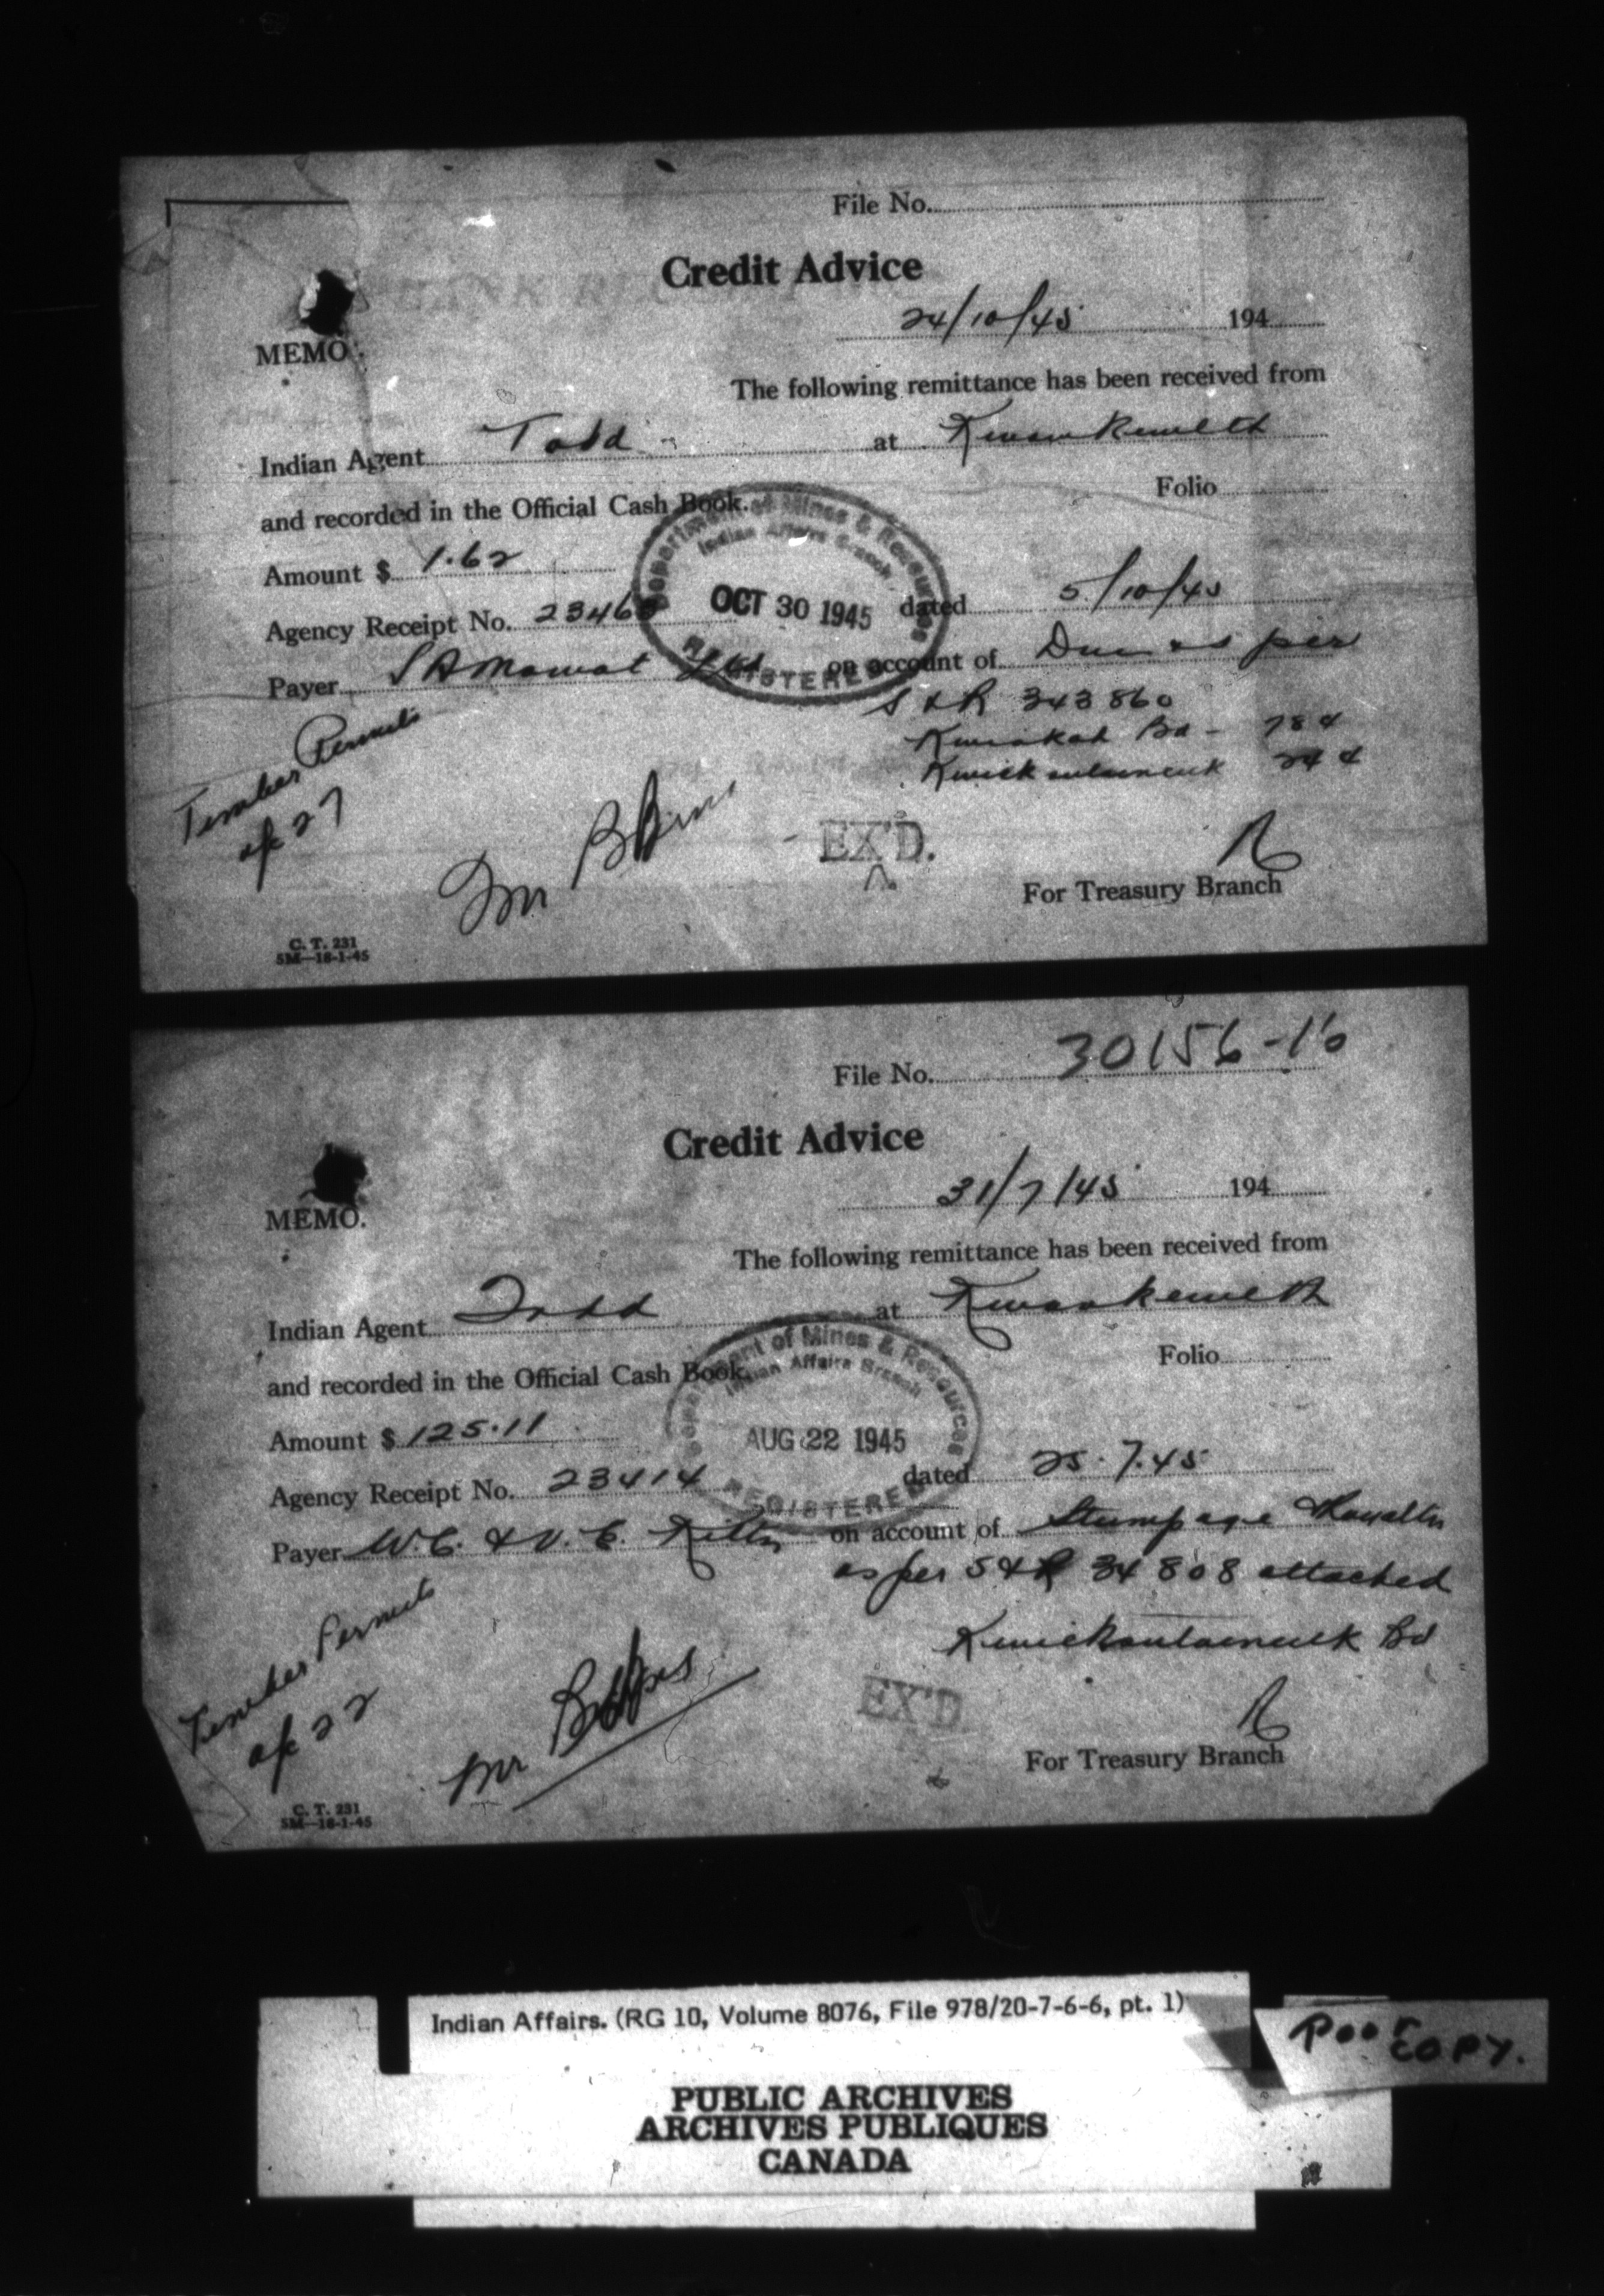 File No.
Credit Advice
24/10/45 194
MEMO.
The following remittance has been received from
Indian Agent Todd at Kwawkewlth
and recorded in the Official Cash Book. Folio
Department of Mines & Resources
Indian Affairs Branch
OCT 30 1945
REGISTERED
Amount $ 1.62
Agency Receipt No. 2346 dated 5/10/45
Payer on account of Dues as per
S & R 343860
Bd - 78 ¢
Timber Permits
27
Mr
EX'D.
For Treasury Branch
C. T. 231
5M-18-1-45
File No. 30156-16
Credit Advice
31/7/45 194
MEMO.
The following remittance has been received from
Indian Agent Todd at Kwawkewlth
and recorded in the Official Cash Book. Folio
Department of Mines & Resources
Indian Affairs Branch
AUG 22 1945
REGISTERED
Amount $ 125.11
Agency Receipt No. 23414 dated 25.7.45
Payer W.C. & V. C. on account of Stumpage
as per S & R 34808 attached
Bd
Timber Permits
22
Mr
EX'D
For Treasury Branch
C. T. 231
5M-18-1-45
Indian Affairs. (RG 10, Volume 8076, File 978/20-7-6-6, pt. 1)
Poor COPY.
PUBLIC ARCHIVES
ARCHIVES PUBLIQUES
CANADA